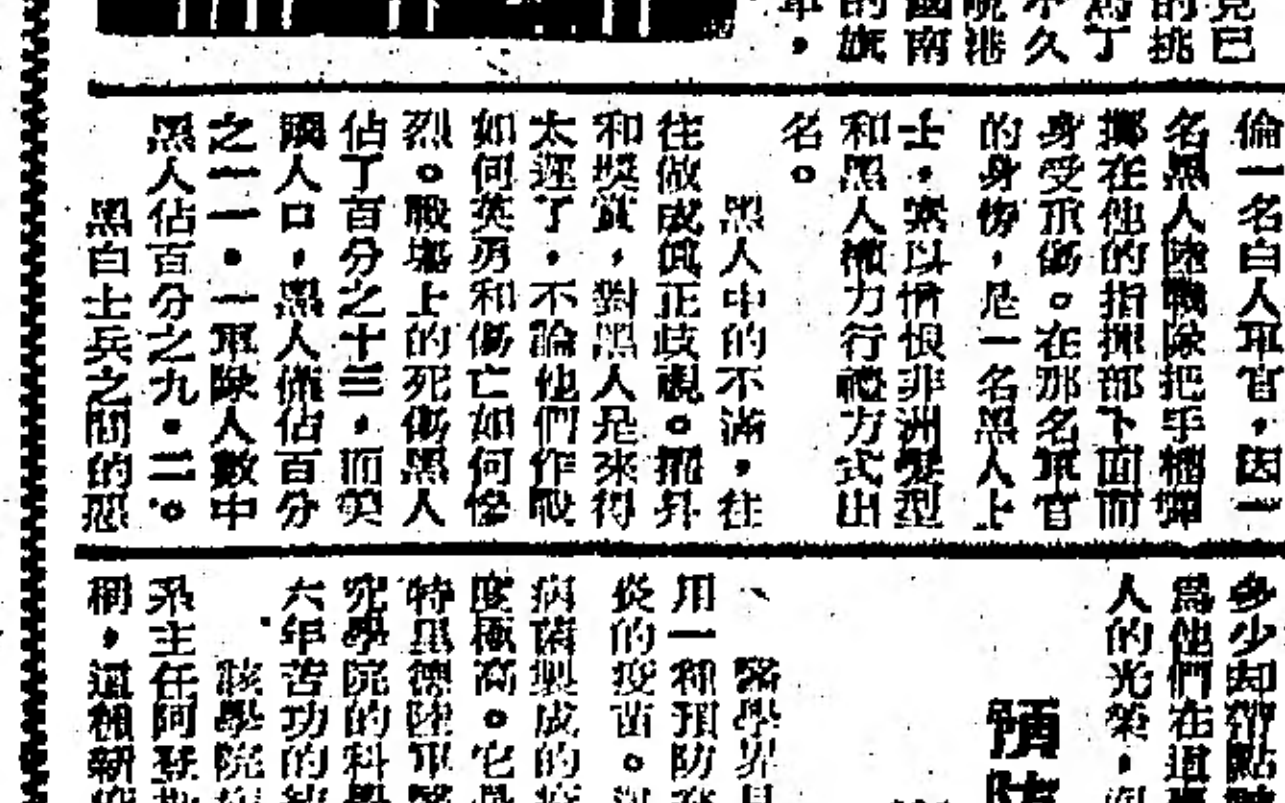 見已
的挑
爲丁
不久
院港
國南
的旗
軍，
倫一名白人軍官，因一
名黑人陸戰隊把手榴彈
擲在他的指揮部下面而
身受重傷。在那名軍官
的身傍，是一名黑人上
士，素以憎恨非洲髮型
和黑人權力行禮方式出
名。
黑人中的不滿，往
往做成眞正歧視。擢昇
和獎賞，對黑人是來得
太遲了，不論他們作戰
如何英勇和傷亡如何慘
烈。戰塲上的死傷黑人
佔了百分之十三，而美
國人口，黑人僅佔百分
之一一．一軍隊人數中
黑人佔百分之九．二。
黑白士兵之間的惡
多少却帶點
爲他們在這
人的光榮，
預防
醫學界
用一種預防
炎的疫苗。
病菌製成的疫
度極高。它是
特里德陸軍醫
究學院的科學
六年苦功的結
該學院
系主任阿登
稱，這種新疫